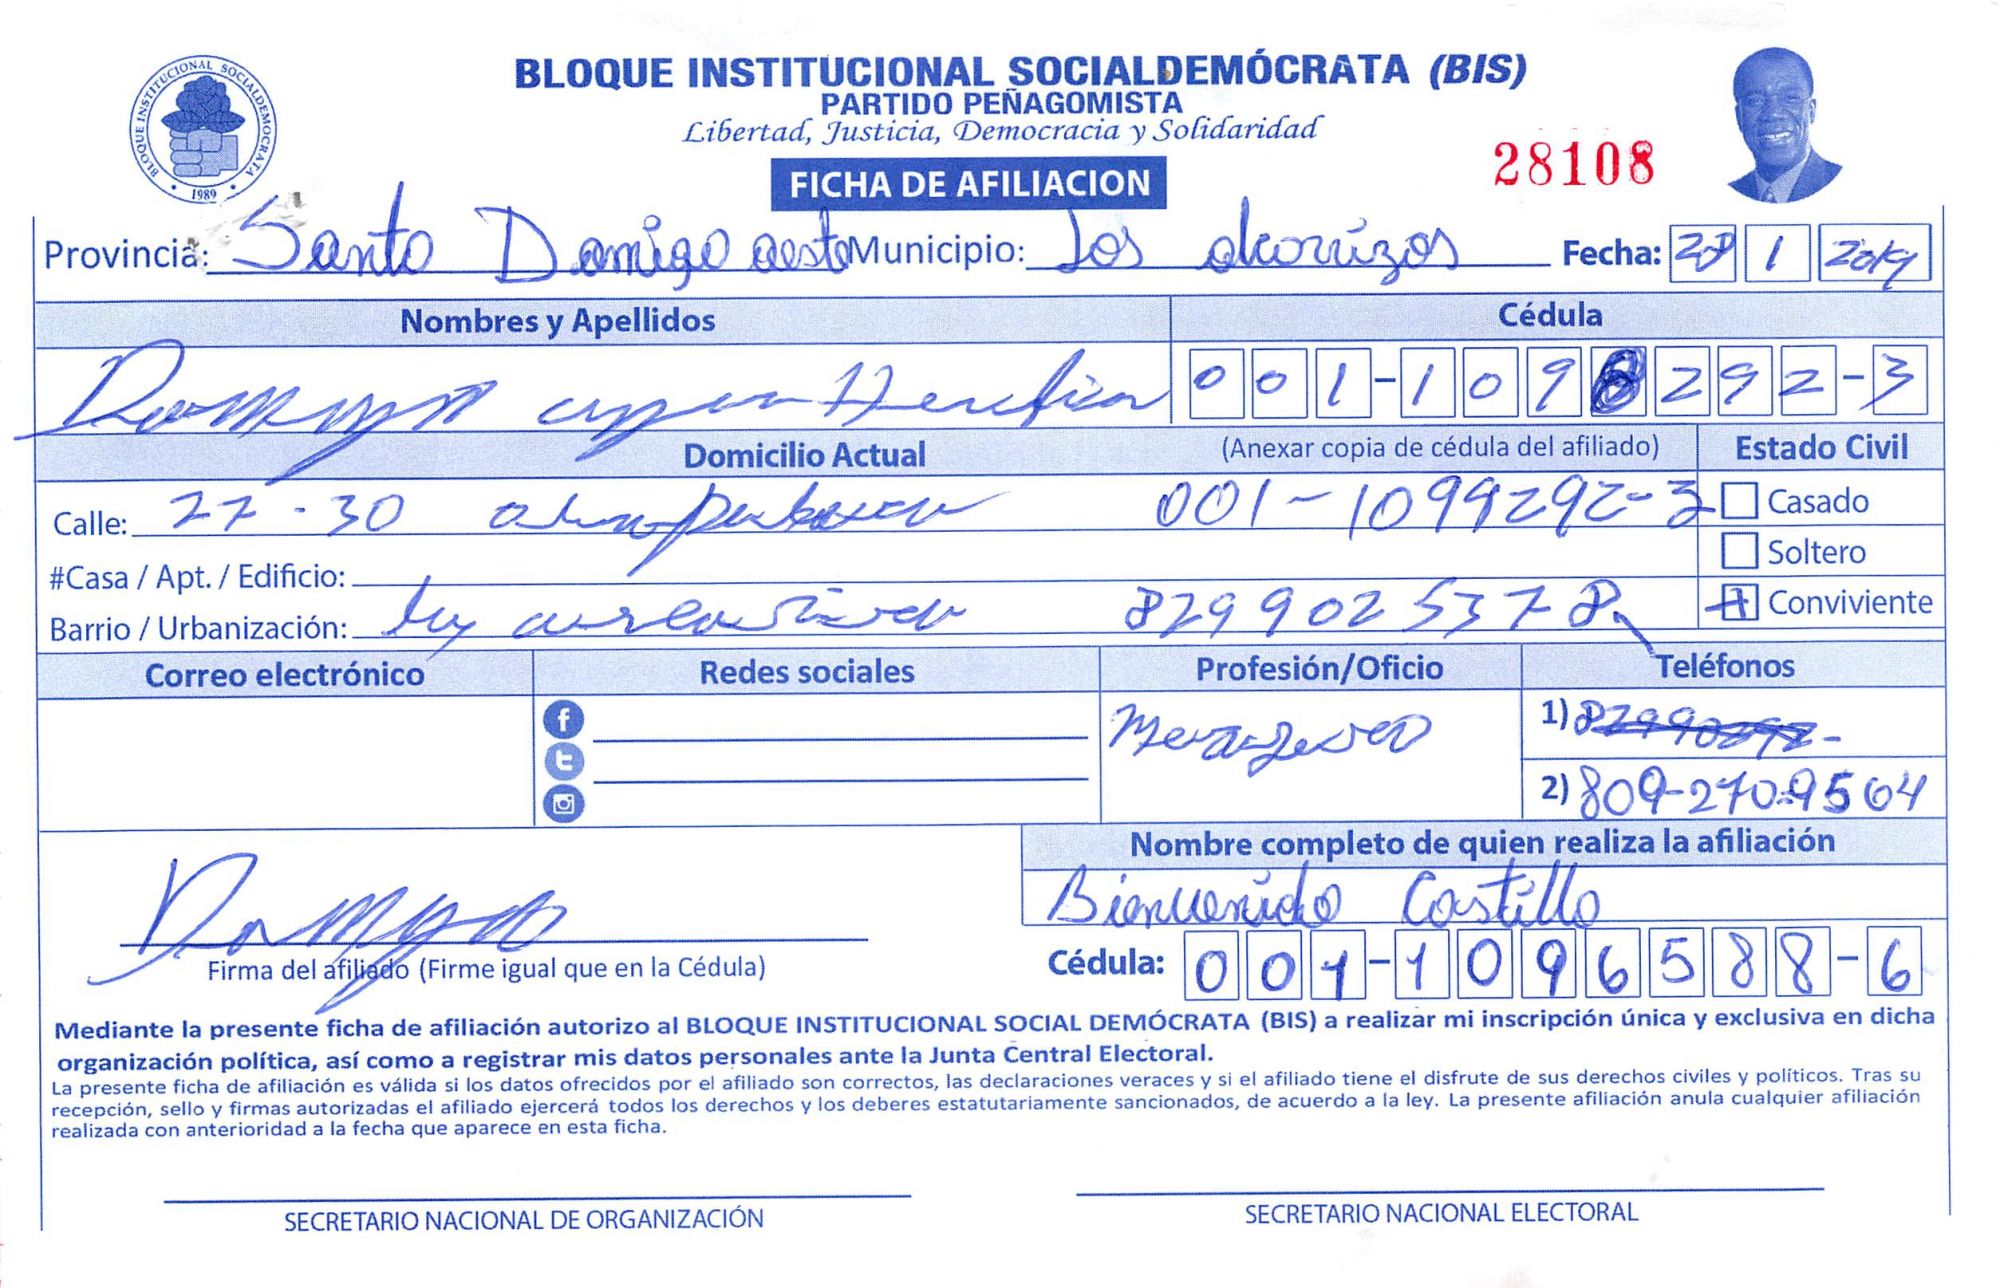 BLOQUE INSTITUCIONAL SOCIALDEMOCRATA
1989
BLOQUE INSTITUCIONAL SOCIALDEMÓCRATA (BIS)
PARTIDO PEÑAGOMISTA
Libertad, Justicia, Democracia y Solidaridad
28108
FICHA DE AFILIACION
Provincia: Santo Domigo oesto Municipio: Los alcarrizos Fecha: 28 1 2019
Nombres y Apellidos Cédula
001-109 292-3
Domicilio Actual (Anexar copia de cédula del afiliado) Estado Civil
Calle: 27-30 001-1099292-3 Casado
Soltero
#Casa / Apt. / Edificio:
Barrio / Urbanización: 8299025378 Conviviente
Correo electrónico Redes sociales Profesión/Oficio Teléfonos
1)
2) 809-270-9564
Nombre completo de quien realiza la afiliación
Bienvenido Castillo
Firma del afiliado (Firme igual que en la Cédula) Cédula: 001-1096588-6
Mediante la presente ficha de afiliación autorizo al BLOQUE INSTITUCIONAL SOCIAL DEMÓCRATA (BIS) a realizar mi inscripción única y exclusiva en dicha
organización política, así como a registrar mis datos personales ante la Junta Central Electoral.
La presente ficha de afiliación es válida si los datos ofrecidos por el afiliado son correctos, las declaraciones veraces y si el afiliado tiene el disfrute de sus derechos civiles y políticos. Tras su
recepción, sello y firmas autorizadas el afiliado ejercerá todos los derechos y los deberes estatutariamente sancionados, de acuerdo a la ley. La presente afiliación anula cualquier afiliación
realizada con anterioridad a la fecha que aparece en esta ficha.
SECRETARIO NACIONAL DE ORGANIZACIÓN SECRETARIO NACIONAL ELECTORAL